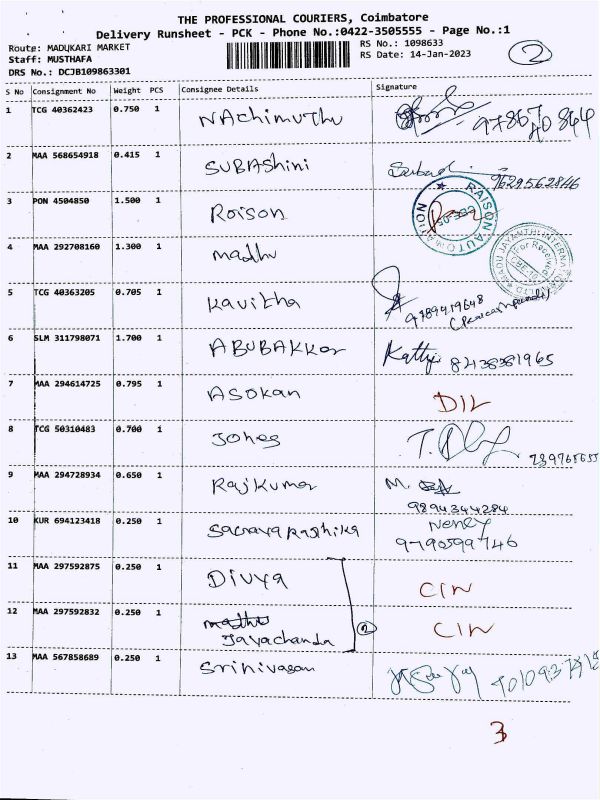 THE PROFESSIONAL COURIERS, Coimbatore
Delivery Runsheet - PCK - Phone No.:0422-3505555 - Page No.:1
Route: MADUKARI MARKET
Staff: MUSTHAFA
DRS No.: DCJB109863301
RS No.: 1098633
RS Date: 14-Jan-2023
2
S No Consignment No Weight PCS Consignee Details Signature
1 TCG 40362423 0.750 1 NAchimuthu
2 MAA 568654918 0.415 1 SUBAShini 9629562846
3 PON 4504850 1.500 1 Roison RAISON AUTOMATION
4 MAA 292708160 1.300 1 madhu
5 TCG 40363205 0.705 1 Kavitha 9789419648
6 SLM 311798071 1.700 1 ABUBAKKAR Kathy 82438381965
7 MAA 294614725 0.795 1 ASOKAN DIL
8 TCG 50310483 0.700 1 Johes
9 MAA 294728934 0.650 1 RajKumar M.
9894344284
10 KUR 694123418 0.250 1
9790599746
11 MAA 297592875 0.250 1 Divya CIN
12 MAA 297592832 0.250 1 madhu CIN
Jayachanda 2
13 MAA 567858689 0.250 1 Srinivasan
3